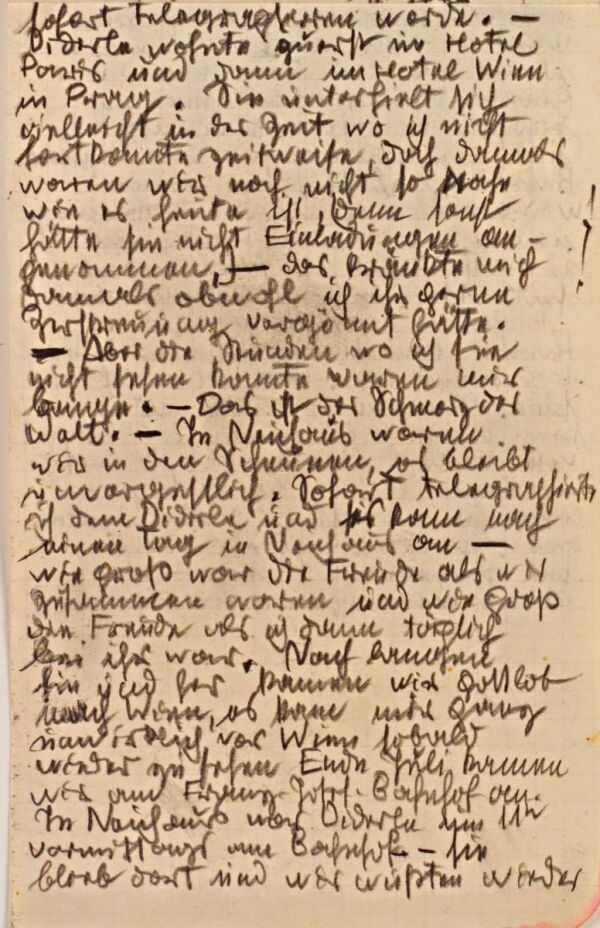 sofort telegraphieren werde. —
Diderle wohnte zuerst im Hotel
Paris und dann im Hotel Wien
in Prag. Sie unterhielt sich
vielleicht in der Zeit wo ich nicht
fort konnte zeitweise, doch damals
waren wir noch nicht so nahe
wie es heute ist, denn sonst
hätte sie nicht Einladungen an-
genommen, — das kränkte mich !
damals obwohl ich ihr gerne
Zerstreuung vergönnt hätte.
— Aber die Stunden wo ich sie
nicht sehen konnte waren mir
bange. — Das ist der Schmerz der
Welt. — In Neuhaus waren
wir in den Scheunen, es bleibt
unvergesslich. Sofort telegraphierte
ich dem Diderle und es kam nach
einen Tag in Neuhaus an —
wie groß war die Freude als wir
zusammen waren und wie groß
die Freude als ich dann täglich
bei ihr war. Nach langen
hin und her kamen wir gottlob
nach Wien, es kam mir ganz
unwirklich vor Wien sobald
wieder zu sehen Ende Juli kamen
wir am Franz-Josef-Bahnhof an.
In Neuhaus war Diderle um 11h
vormittags am Bahnhof — sie
blieb dort und wir wußten wieder